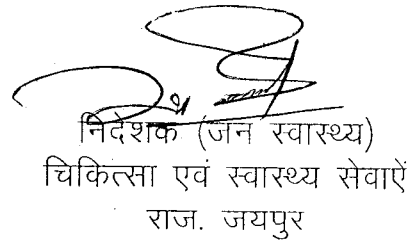 निदेशक (जन स्वास्थ्य)
चिकित्सा एवं स्वास्थ्य सेवाऐं
राज. जयपुर